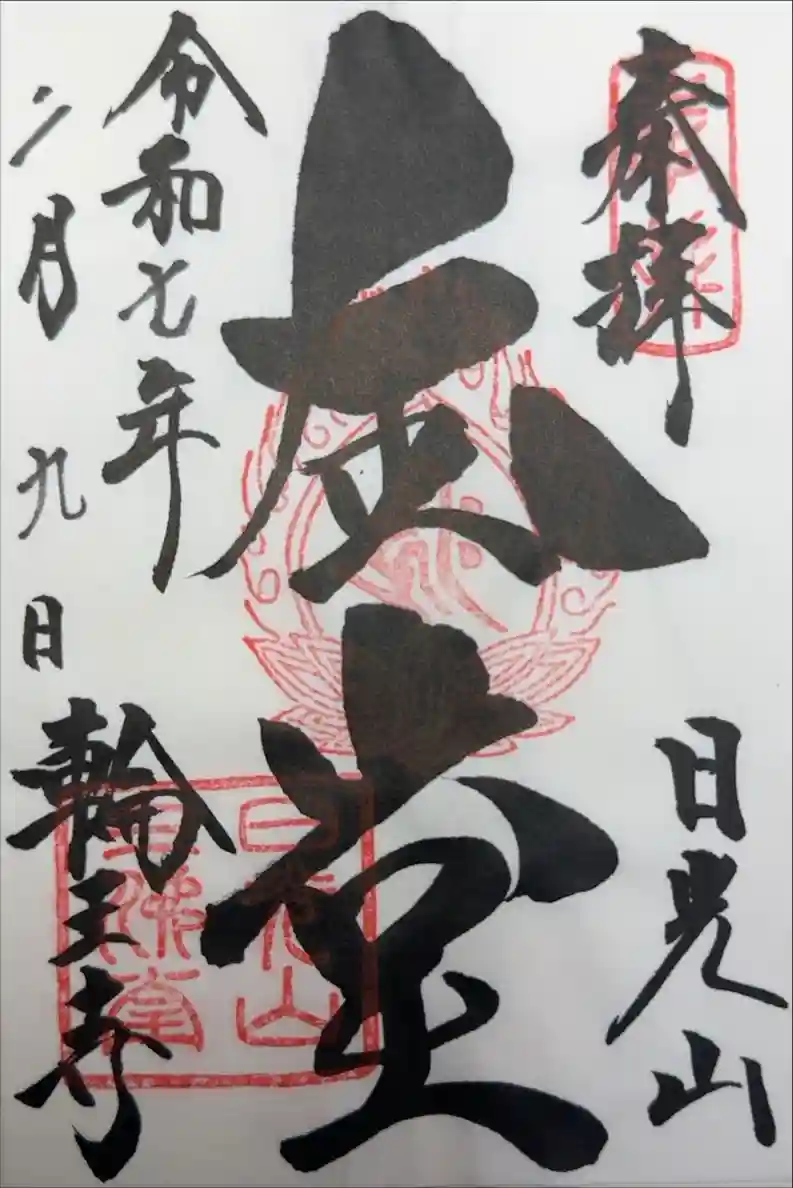 奉拝
日光山
金堂
令和七年
二月九日
輪王寺
日光山
三佛堂